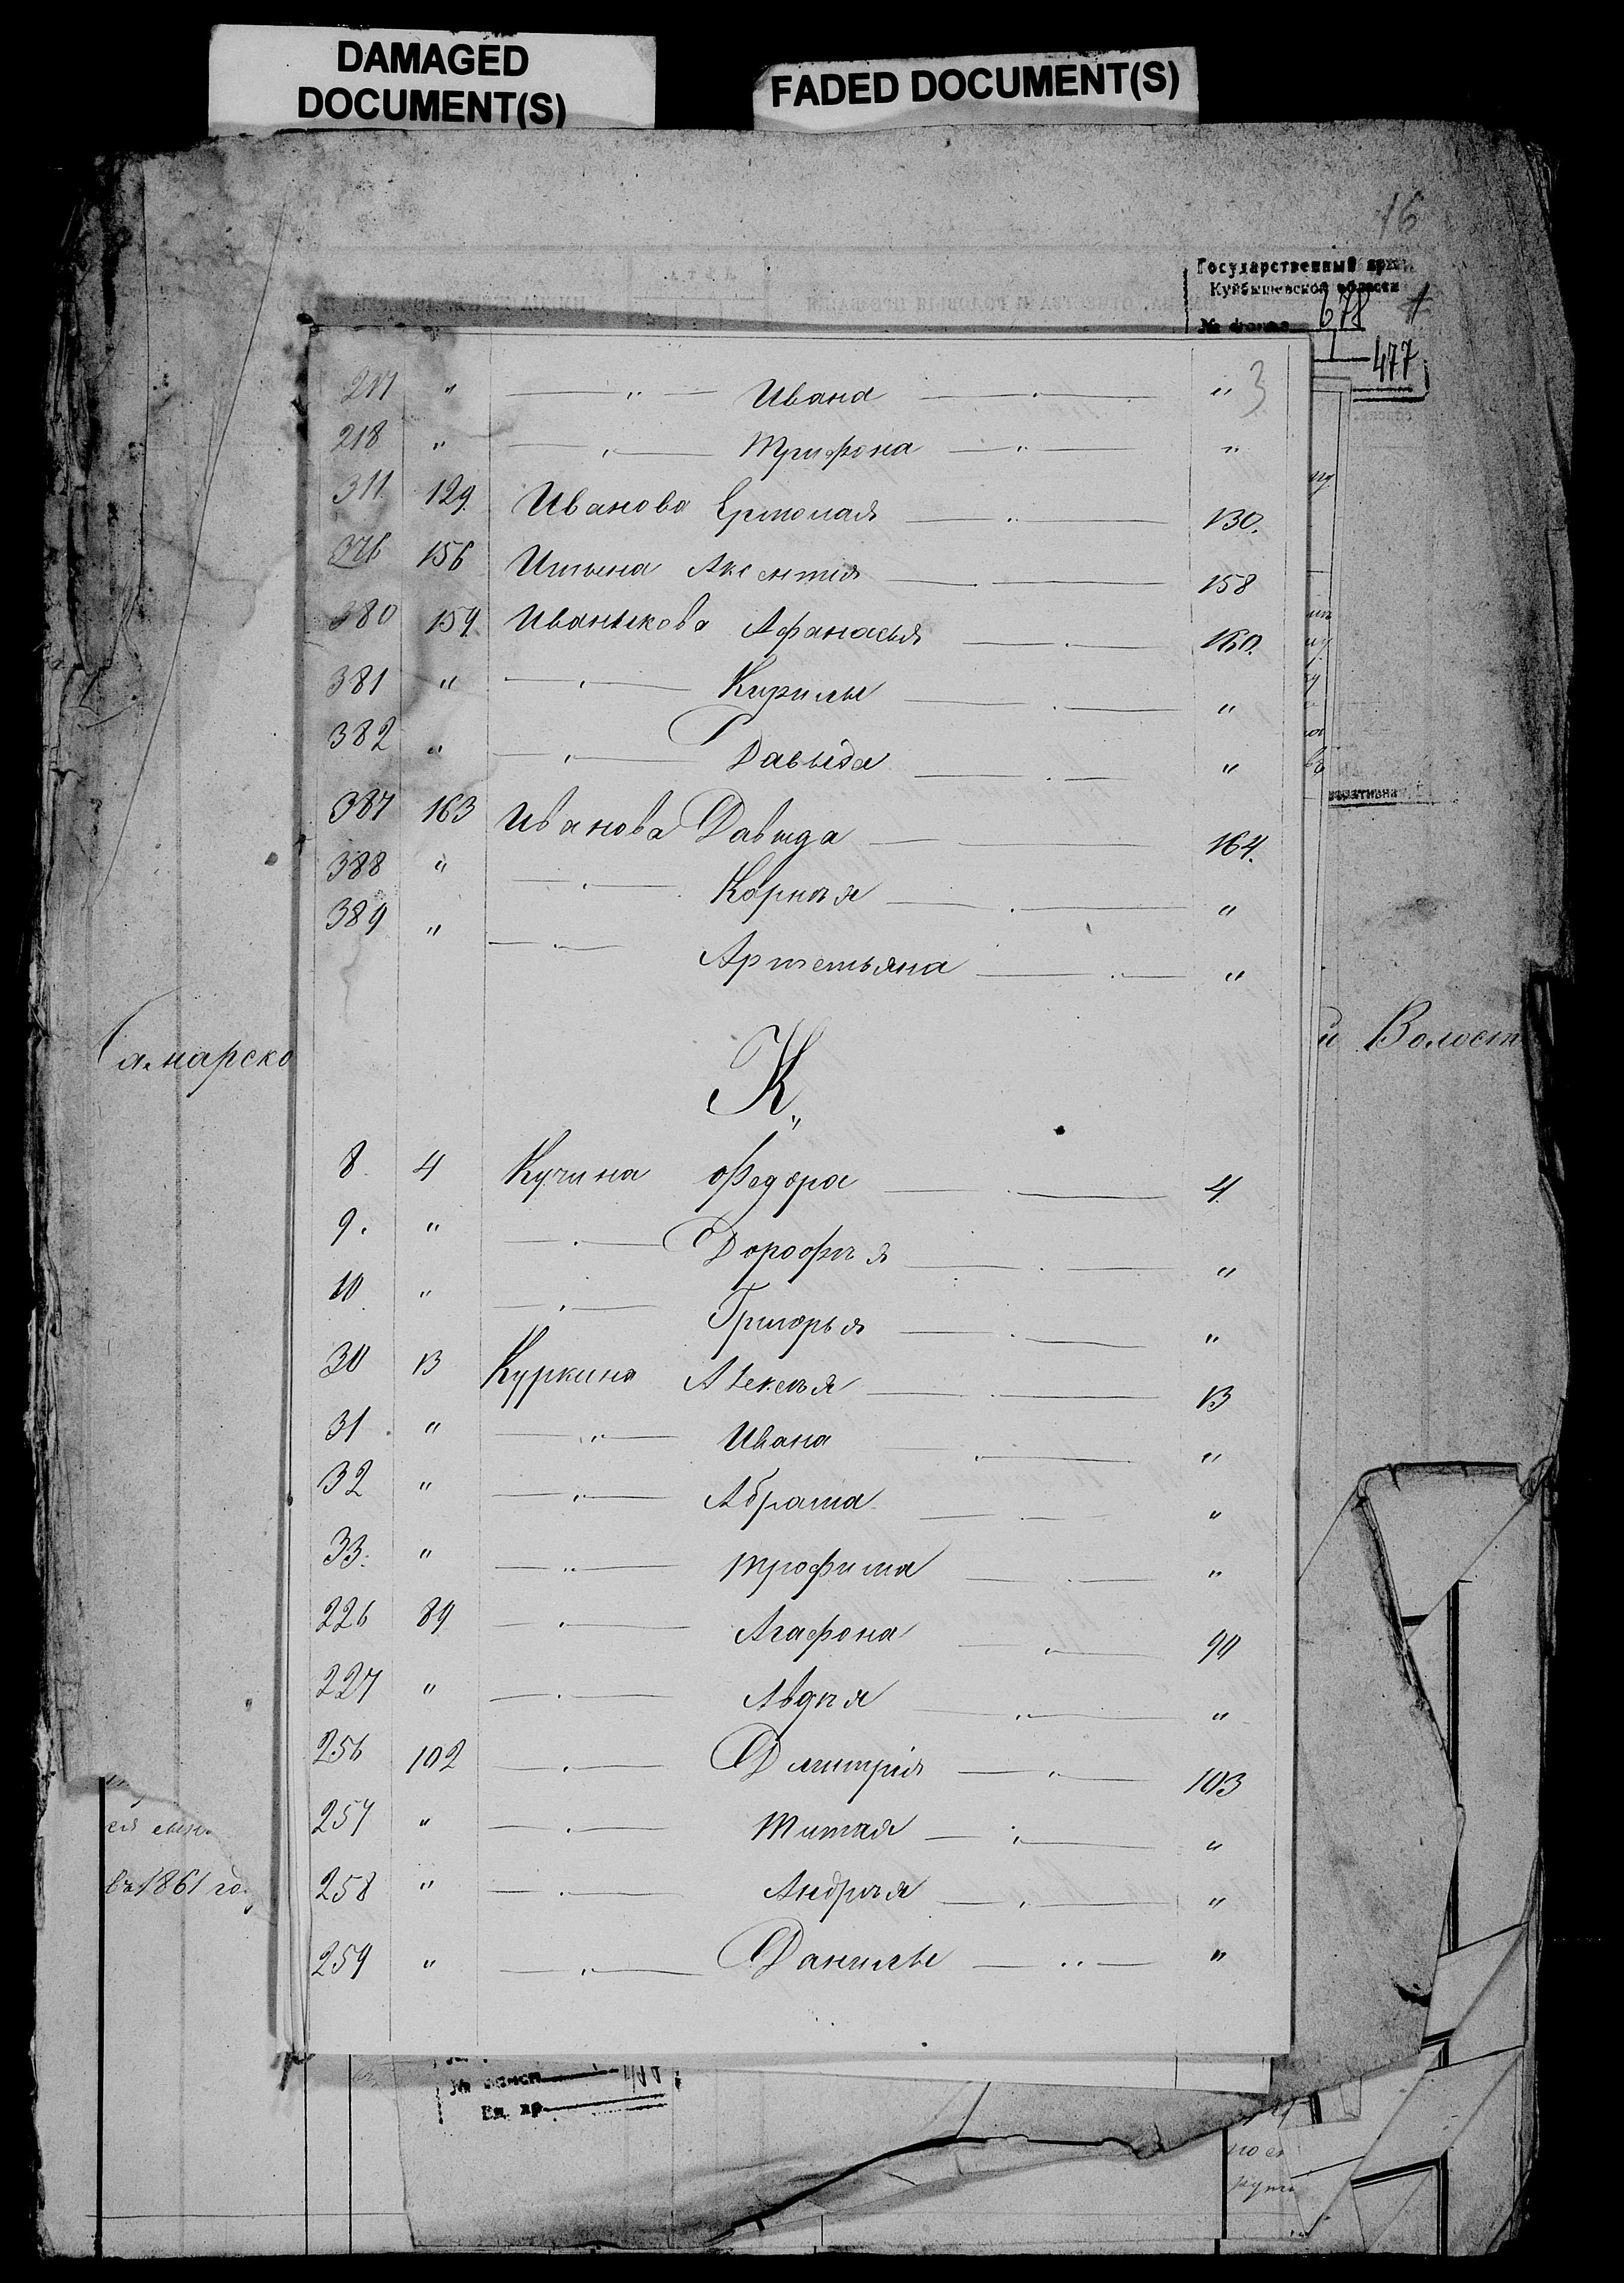 DAMAGED
DOCUMENT(S)
FADED DOCUMENT(S)
16
Государственный архив
Куйбышевской области
№ фонда 678
1
477
3
217 " — " — Ивана — " — "
218 " — " — Трифона — " — "
311 129. Иванова Ермолая — " — 130.
376 156 Ильина Аксентия — " — 158
380 159. Иванькова Афанасья — " — 160.
381 " — " — Кирилы — " — "
382 " — " — Давыда — " — "
387 163 Иванова Давыда — " — 164.
388 " — " — Корнѣя — " — "
389 " — " — Артемьяна — " — "
К"
8 4 Кучина Федора — " — 4.
9. " — " — Дорофѣя — " — "
10 " — " — Григорья — " — "
30 13 Куркина Алексѣя — " — 13
31 " — " — Ивана — " — "
32 " — " — Абрама — " — "
33. " — " — Трофима — " — "
226 89 — " — Агафона — " — 90
227 " — " — Авдѣя — " — "
256 102 — " — Дмитрія — " — 103
257 " — " — " — "
258 " — " — Андрѣя — " — "
259 " — " — Данилы — " — "
Самарско
й Волост
въ 1861 го
Ед. хр.